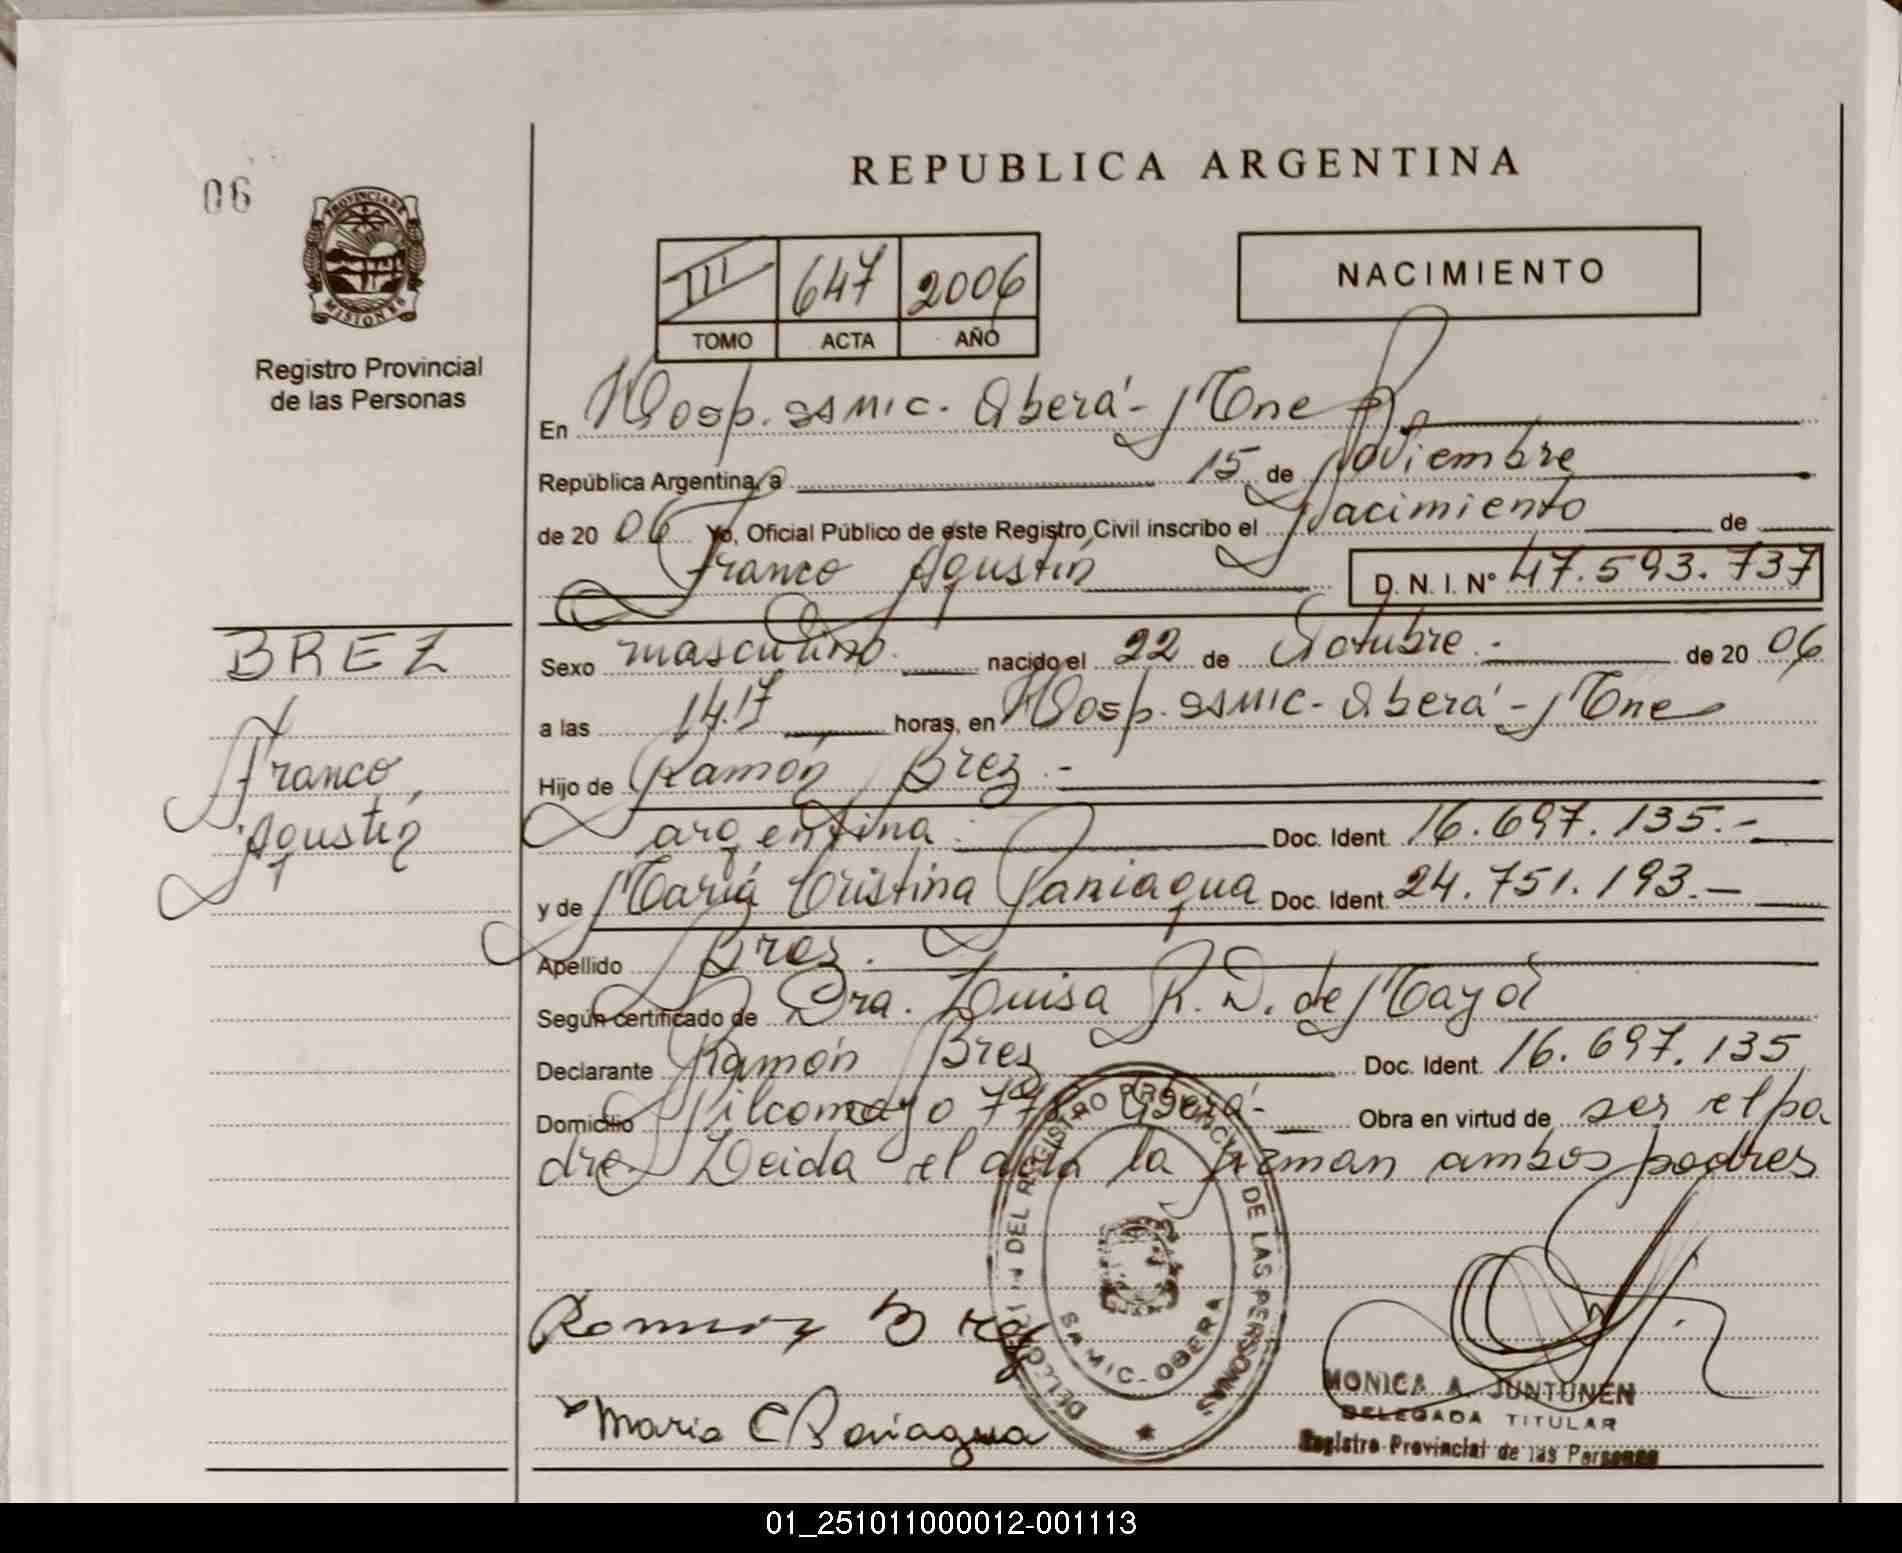 06
PROVINCIA DE
MISIONES
Registro Provincial
de las Personas
REPUBLICA ARGENTINA
III 647 2006
TOMO ACTA AÑO
NACIMIENTO
En Hosp. SAMIC. Oberá - Mnes
República Argentina, a 15 de Noviembre
de 20 06 Yo, Oficial Público de este Registro Civil inscribo el Nacimiento de
Franco Agustín D. N. I. N° 47.593.737
BREZ
Franco
Agustín
Sexo masculino. nacido el 22 de Octubre.- de 20 06
a las 14.17 horas, en Hosp. SAMIC - Oberá - Mnes
Hijo de Ramón Brez.-
argentina. Doc. Ident. 16.697.135.-
y de María Cristina Paniagua Doc. Ident. 24.751.193.-
Apellido Brez.
Según certificado de Dra. Luisa R. D. de Mayol
Declarante Ramón Brez Doc. Ident. 16.697.135
Domicilio Pilcomayo 778 Oberá- Obra en virtud de ser el pa
dre. Leida el acta la firman ambos padres
Ramon Brez
Maria C Paniagua
DEL REGISTRO PROVINCIAL DE LAS PERSONAS
SAMIC - OBERA
MONICA A. JUNTUNEN
DELEGADA TITULAR
Registro Provincial de las Personas
01_251011000012-001113